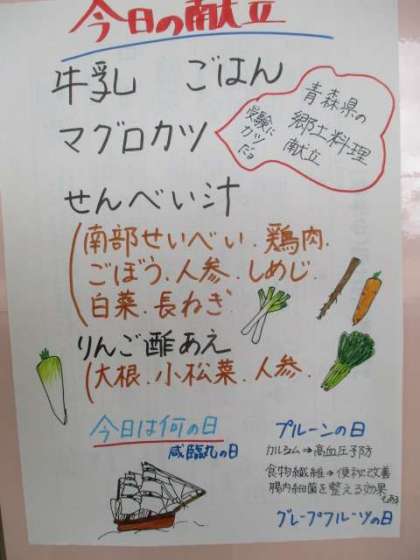 今日の献立
牛乳 ごはん
マグロカツ
青森県の
郷土料理
献立
受験に
カツ
だョ
せんべい汁
(南部せいべい.鶏肉.
ごぼう.人参.しめじ.
白菜.長ねぎ
りんご酢あえ
(大根.小松菜.人参.
今日は何の日
咸臨丸の日
プルーンの日
カルシウム→高血圧予防
食物繊維→便秘改善
腸内細菌を整える効果
もある
グレープフルーツの日